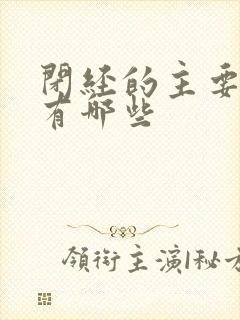 閉經的主要
有哪些
領銜主演|秘方